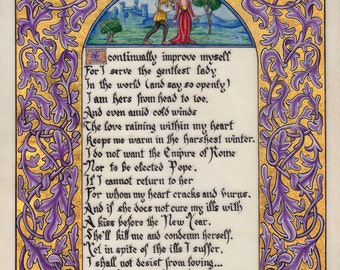 I continually improve myself
For I serve the gentlest lady
In the world (and say so openly)
I am hers from head to toe,
And even amid cold winds
The love raining within my heart
Keeps me warm in the harshest winter.
I do not want the Empire of Rome
Nor to be elected Pope,
If I cannot return to her
For whom my heart cracks and burns.
And if she does not cure my ills with
A kiss before the New Year,
She'll kill me and condemn herself.
Yet in spite of the ills I suffer,
I shall not desist from loving...